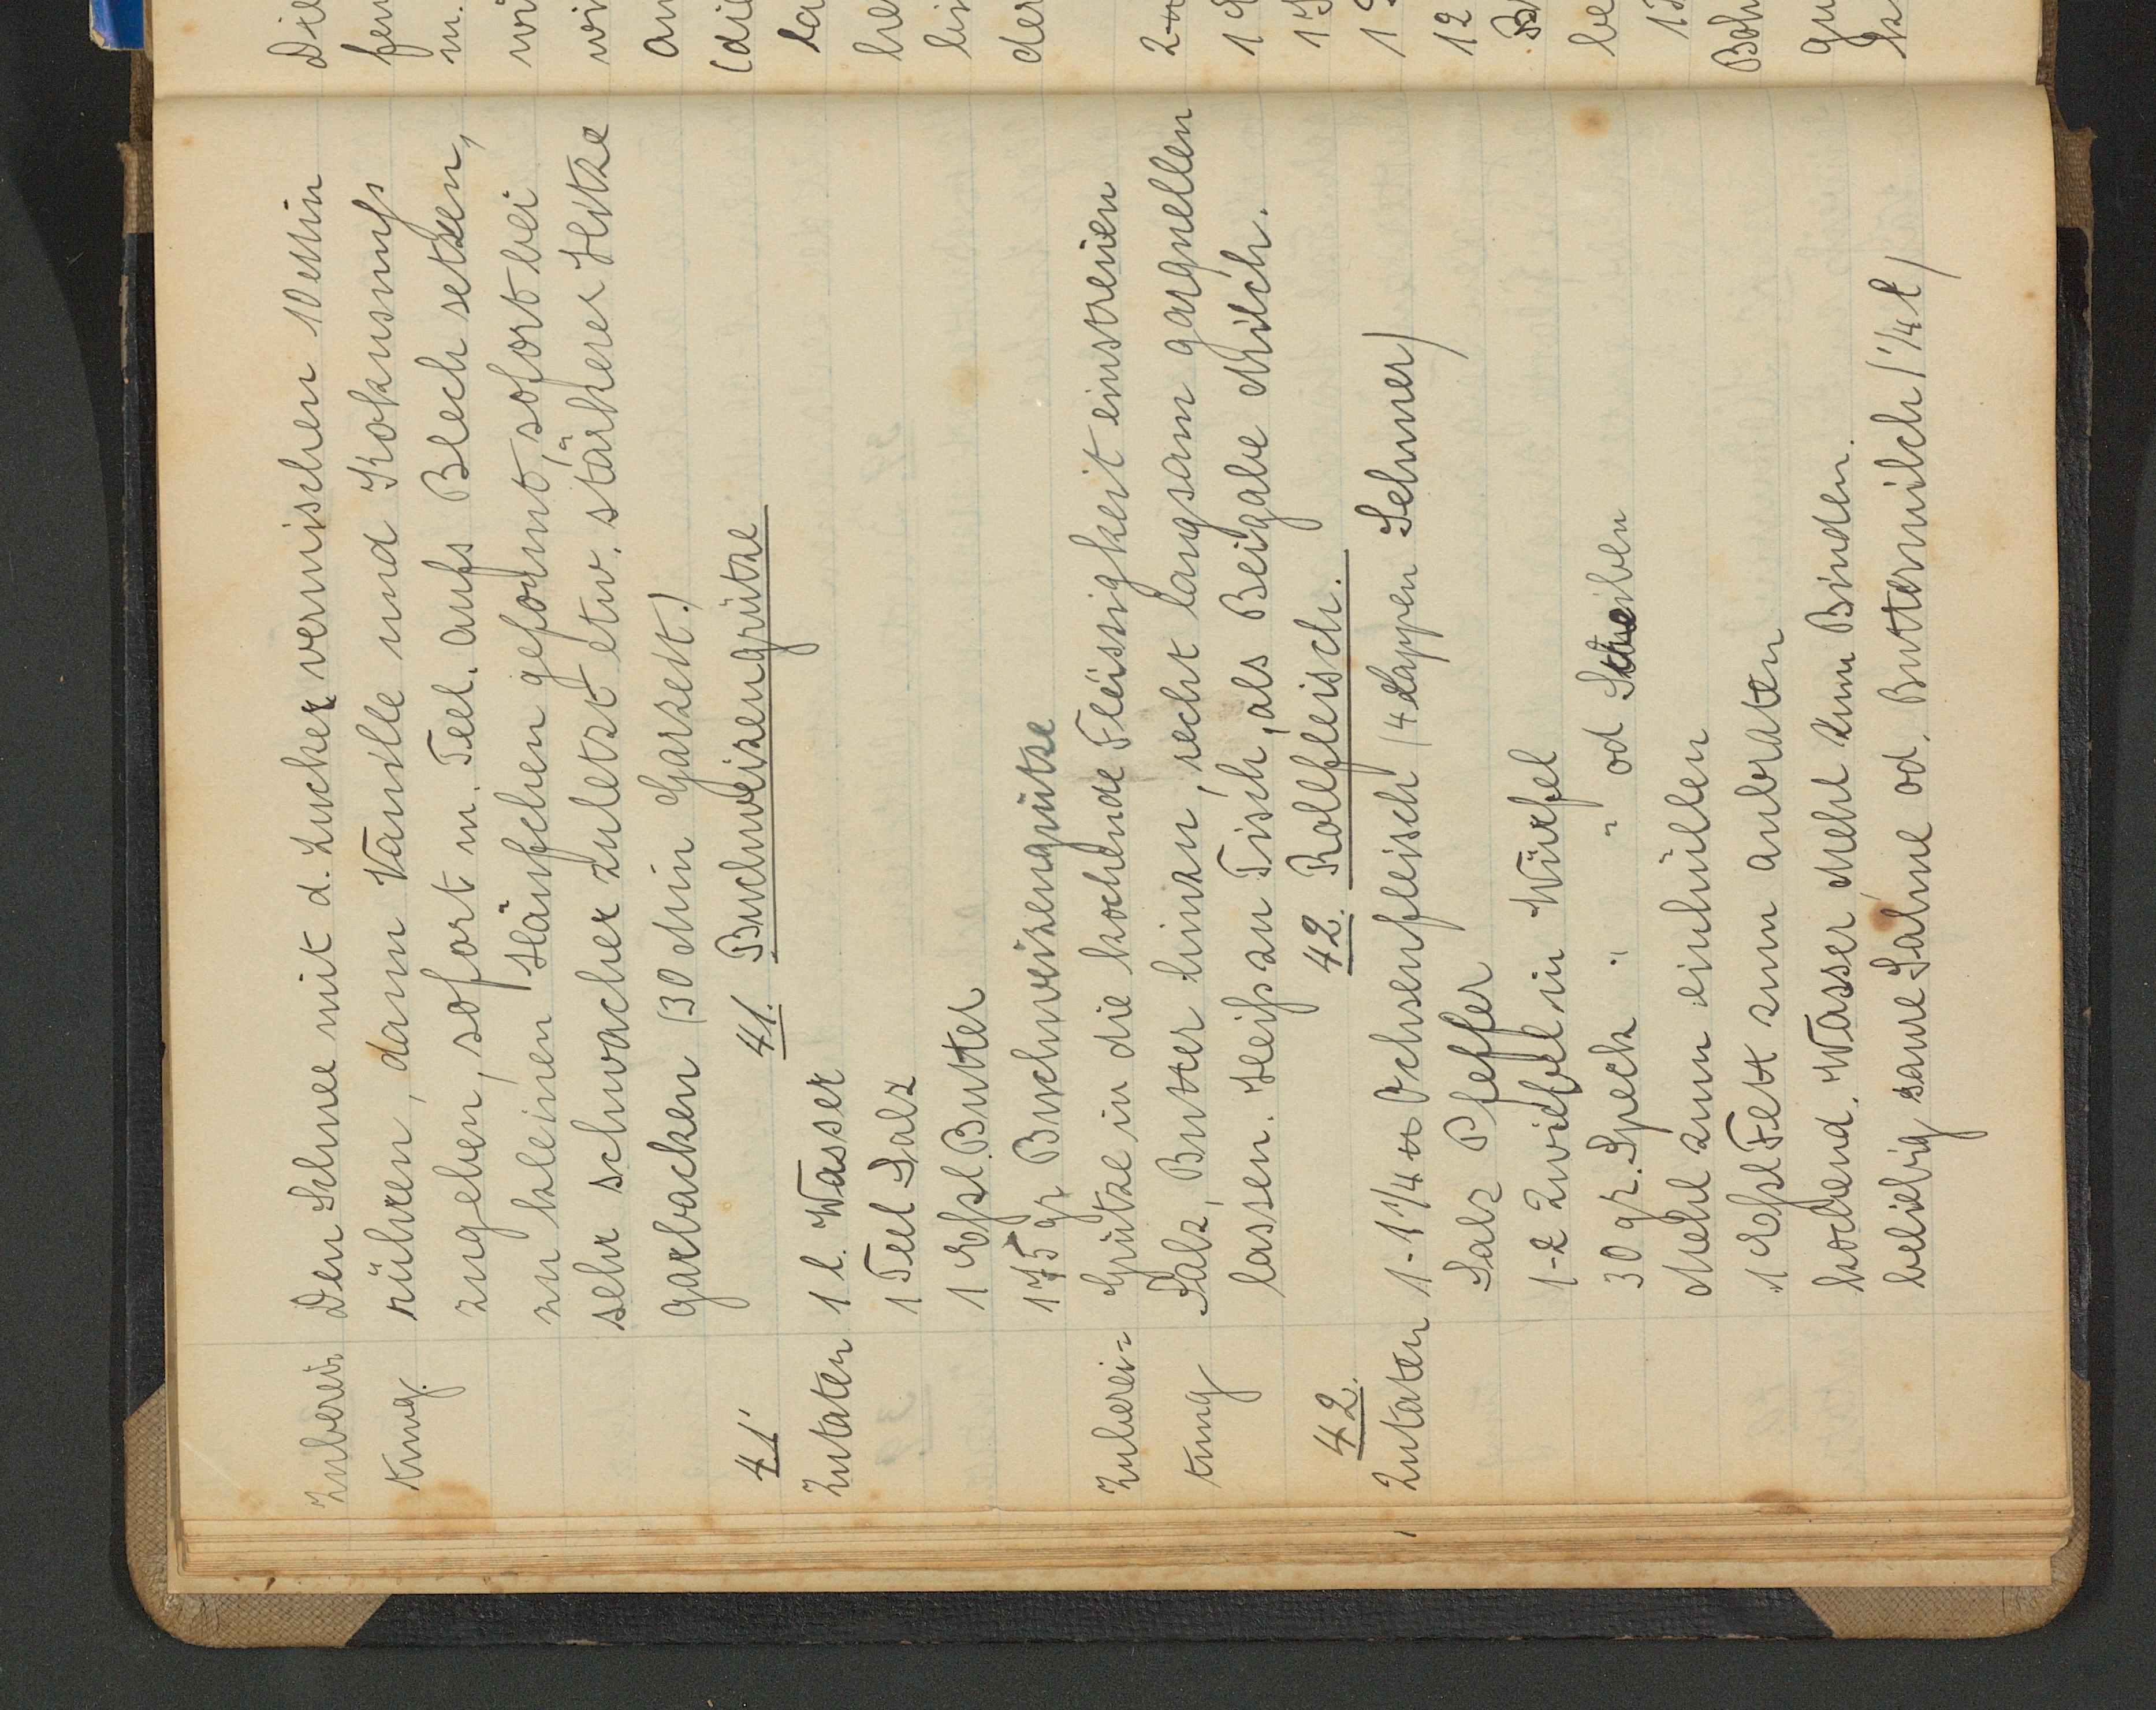 Zuberei- Den Schnee mit d. Zucker vermischen 10 Min
tung. rühren, dann Vanille und Kokusnuß
zugeben, sofort m. Teel. aufs Blech setzen,
zu kleinen Häufchen geformt, sofort bei
sehr schwacher zuletzt etw. stärkerer Hitze
garbacken (30 Min Garzeit.)
41. 41. Buchweizengrütze
Zutaten 1 l. Wasser
1 Teel Salz
1 Eßl. Butter
175 gr Buchweizengrütze
Zuberei= Grütze in die kochende Flüssigkeit einstreuen
tung Salz, Butter hinzu, recht langsam garquellen
lassen. Heiß zu Tisch, als Beigabe Milch.
42. 42. Rollfleisch.
Zutaten 1-1 1/4 ℔ Ochsenfleisch (4 Lappen Schmer)
Salz Pfeffer
1-2 Zwiebel in Würfel
30 gr. Speck " " od Scheiben
Mehl zum einhüllen
1 Eßl Fett zum anbraten
kochend. Wasser, Mehl zum Binden.
beliebig saure Sahne od. Buttermilch (1/4 l)
Die
m.
der
12